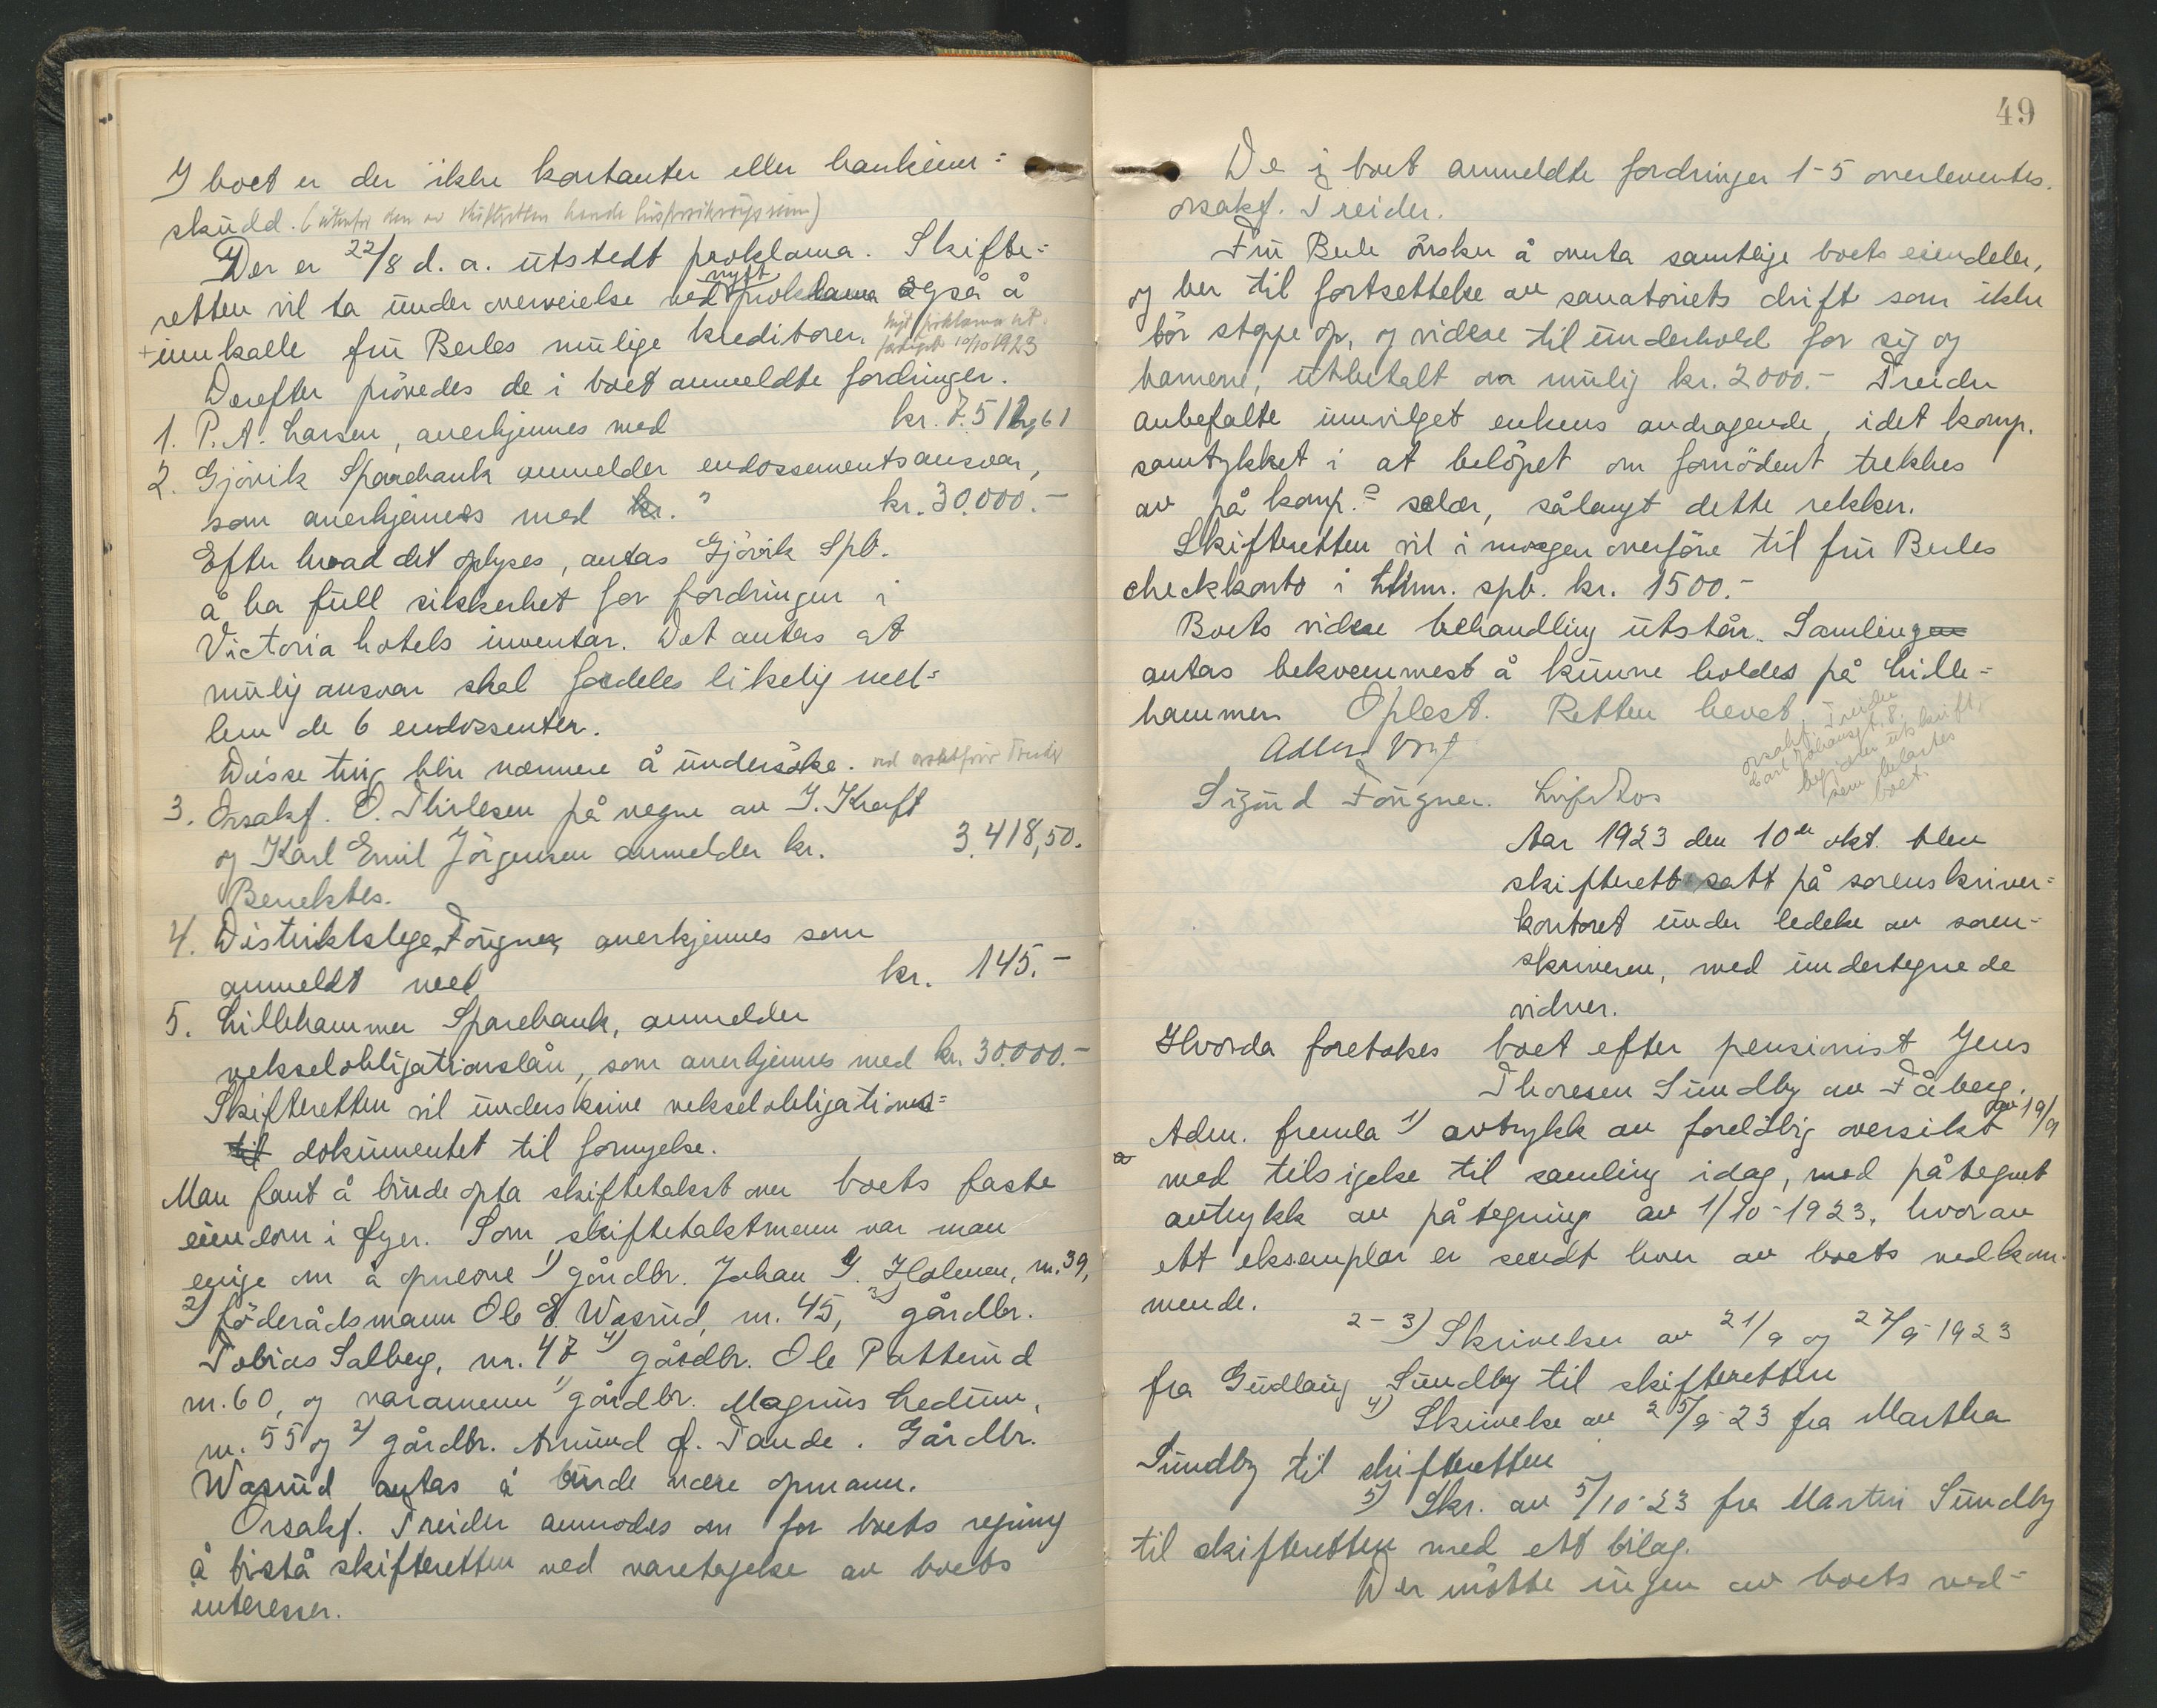 I boet er der ikke kontanter eller bankinn=
skudd. (utenfor den av skifteretten hævede livsforsikringssum)
Der er 22/8 d. a. utstedt proklama. Skifte=
retten vil ta under overveielse ved nytt proklama også å
+ innkalle fru Berles mulige kreditorer. nyt proklama ut-
færdiget 10/10 1923
Derefter prövedes de i boet anmeldte fordringer.
1. P. A. Larsen, anerkjennes med kr. 7.512,61
2. Gjövik Sparebank anmelder endossementsansvar,
som anerkjennes med kr. " kr. 30.000.-
Efter hvad det oplyses, antas Gjövik Spb.
å ha full sikkerhet for fordringen i
Victoria hotels inventar. Det antas at
mulig ansvar skal fordeles likelig mel=
lem de 6 endossenter.
Disse ting blir nærmere å undersöke. ved orsakförer Treider
3. Orsakf. O. Thirlesen på vegne av J. Kraft
og Karl Emil Jörgensen anmelder kr. 3.418,50.
Benektes.
4. Distriktslege Fougner, anerkjennes som
anmeldt med kr. 145.-
5. Lillehammer Sparebank, anmelder
vekselobligationslån, som anerkjennes med kr. 30.000.-
Skifteretten vil underskrive vekselobligations=
til dokumentet til fornyelse.
Man fant å burde opta skiftetakst over boets faste
eiendom i Öyer. Som skiftetakstmenn var man
enige om å opnevne 1) gårdbr. Johan J. Holmen, m. 39,
2) föderådsmann Ole E. Wasrud, m. 45, 3) gårdbr.
Tobias Salberg, m. 47 4) gårdbr. Ole Patterud
m. 60, og varamenn 1) gårdbr. Magnus Ledum,
m. 55 og 2) gårdbr. Amund J. Tande. Gårdbr.
Wasrud antas å burde være opmann.
Orsakf. Treider anmodes om for boets regning
å bistå skifteretten ved varetagelse av boets
interesser.
49
De i boet anmeldte fordringer 1-5 overlevertes
orsakf. Treider.
Fru Berle önsker å overta samtlige boets eiendeler,
og ber til fortsettelse av sanatoriets drift som ikke
bör stoppe op, og videre til underhold for sig og
barnene, utbetalt om mulig kr. 2000.- Treider
anbefalte innvilget enkens andragende, idet komp.
samtykket i at belöpet om fornödent trekkes
av på komp.s salær, sålangt dette rekker.
Skifteretten vil i morgen overföre til fru Berles
checkkonto i Lhmr. spb. kr. 1500.-
Boets videre behandling utstår. Samlingen
antas bekvemmest å kunne holdes på Lille=
hammer. Oplest. Retten hevet.
orsakf. Treider
Carl Johansgt. 8.
begjærer utskrift,
som belastes
boet.
Adler Vogt
Sigurd Fougner. Leif Ros
Aar 1923 den 10de okt. blev
skifterett satt på sorenskriver=
kontoret under ledelse av soren=
skriveren, med undertegnede
vidner.
Hvorda foretokes boet efter pensionist Jens
Thoresen Sundby av Fåberg.
Adm. fremla 1) avtrykk av forelöbig oversikt av 19/9
med tilsigelse til samling idag, med påtegnet
avtrykk av påtegning av 1/10-1923, hvorav
ett eksemplar er sendt hver av boets vedkom-
mende.
2-3) Skrivelser av 21/9 og 27/9-1923
fra Gudlaug Sundby til skifteretten
4) Skrivelse av 25/9-23 fra Martha
Sundby til skifteretten
5) Skr. av 5/10-23 fra Martin Sundby
til skifteretten med ett bilag.
Der mötte ingen av boets ved=